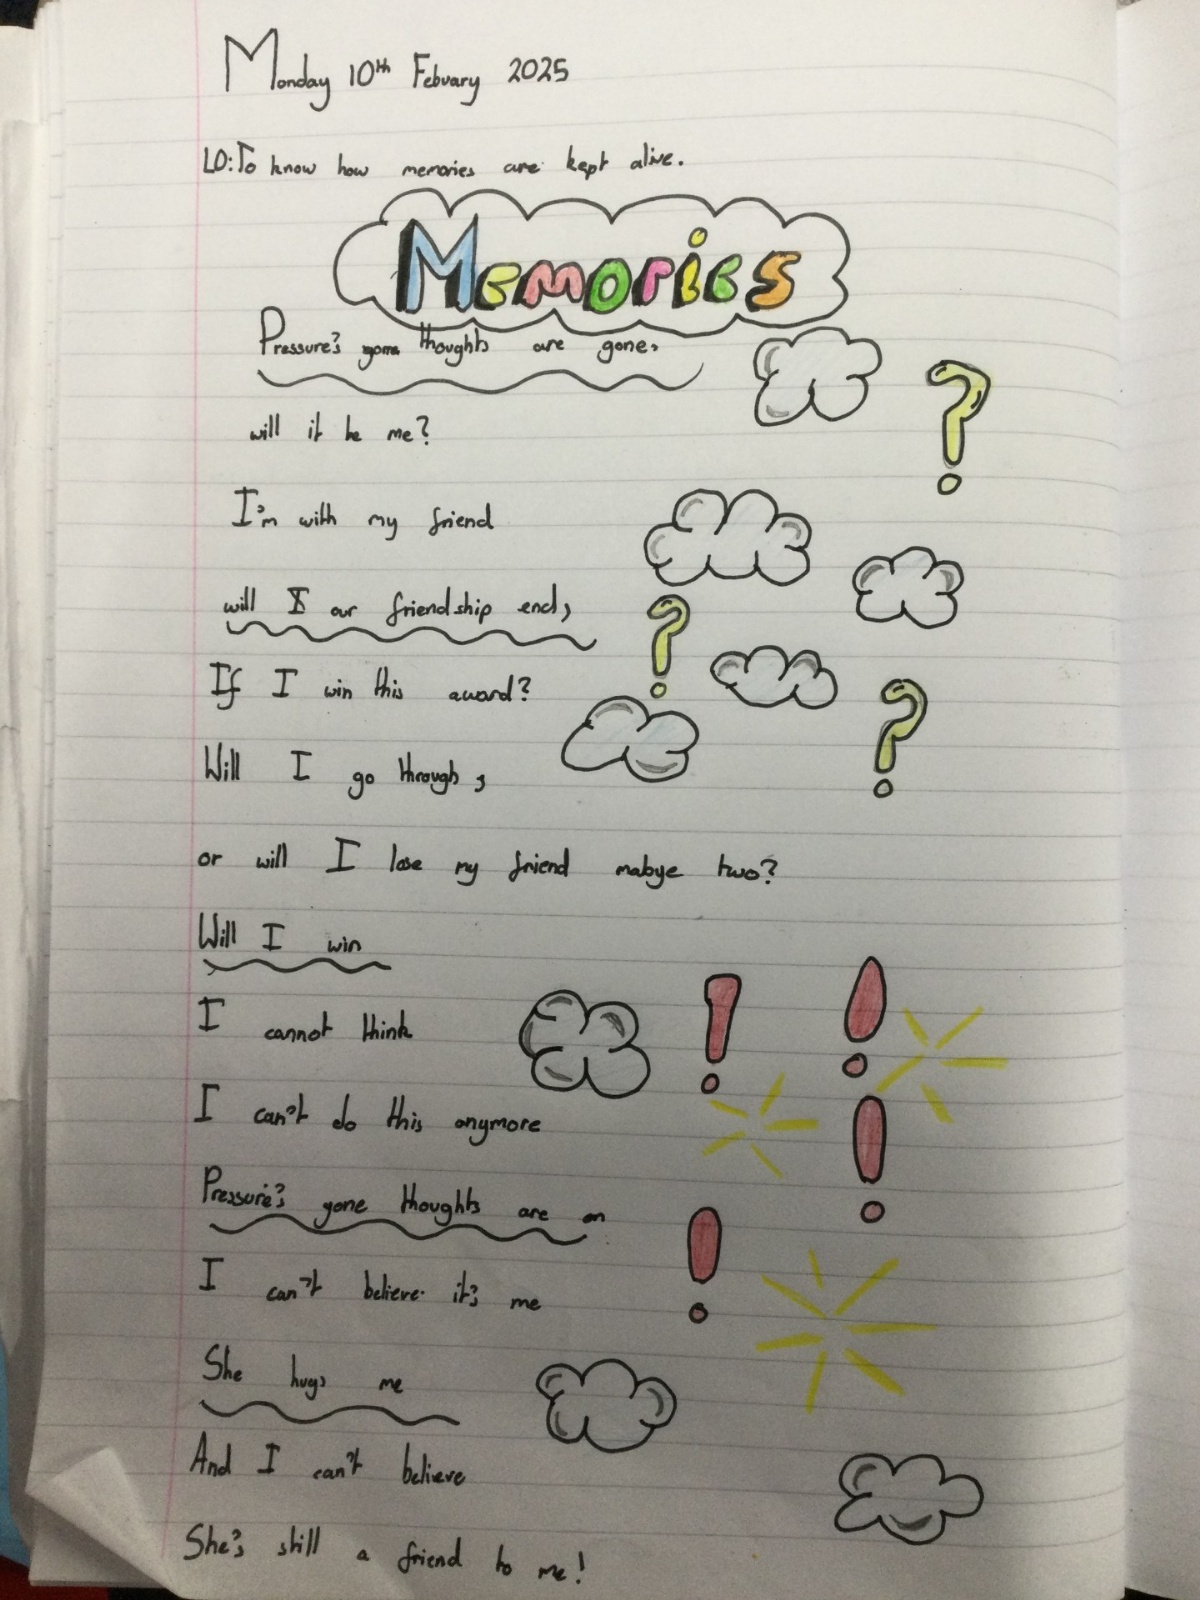 Monday 10th Febuary 2025
LO: To know how memories are kept alive.
Memories
Pressure's thoughts are gone,
will it be me?
I'm with my friend
will our friendship end,
If I win this award?
Will I go through,
or will I lose my friend mabye two?
Will I win
I cannot think
I can't do this anymore
Pressure's gone thoughts are on
I can't believe it's me
She hugs me
And I can't believe
She's still a friend to me!